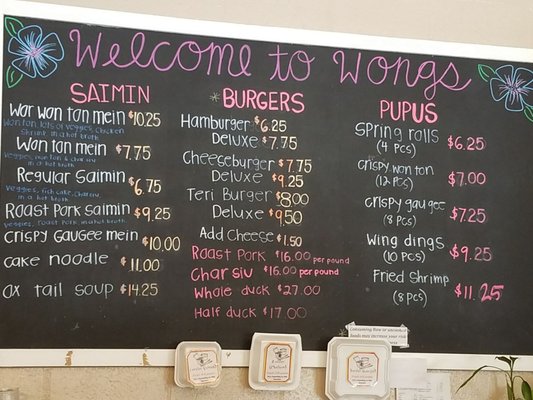 Welcome to Wongs
SAIMIN
War won ton mein $10.25
Won ton, lots of veggies, chicken
shrimp in a hot broth
Won ton mein $7.75
veggies, won ton & charsiu
in a hot broth
Regular Saimin $6.75
veggies, fish cake, charsiu,
in a hot broth
Roast Pork Saimin $9.25
veggies, roast pork, in a hot broth
Crispy Gau Gee mein $10.00
cake noodle $11.00
ox tail soup $14.25
*BURGERS
Hamburger $6.25
Deluxe $7.75
Cheeseburger $7.75
Deluxe $9.25
Teri Burger $8.00
Deluxe $9.50
Add Cheese $1.50
Roast Pork $16.00 per pound
Char siu $16.00 per pound
Whole duck $27.00
Half duck $17.00
PUPUS
Spring rolls $6.25
(4 PCS)
crispy won ton $7.00
(12 PCS)
crispy gau gee $7.25
(8 PCS)
Wing dings $9.25
(10 PCS)
Fried Shrimp $11.25
(8 PCS)